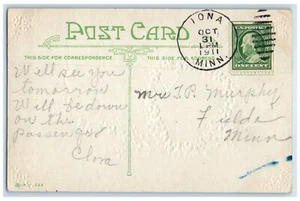 POST CARD
THIS SIDE FOR CORRESPONDENCE
THIS SIDE FOR ADDRESS
IONA
OCT
31
1 PM
1911
MINN.
ONE CENT
Will see you
tomorrow
Will be down
on the
passenger
Clara
Mrs T.P. Murphy
Fulda
Minn